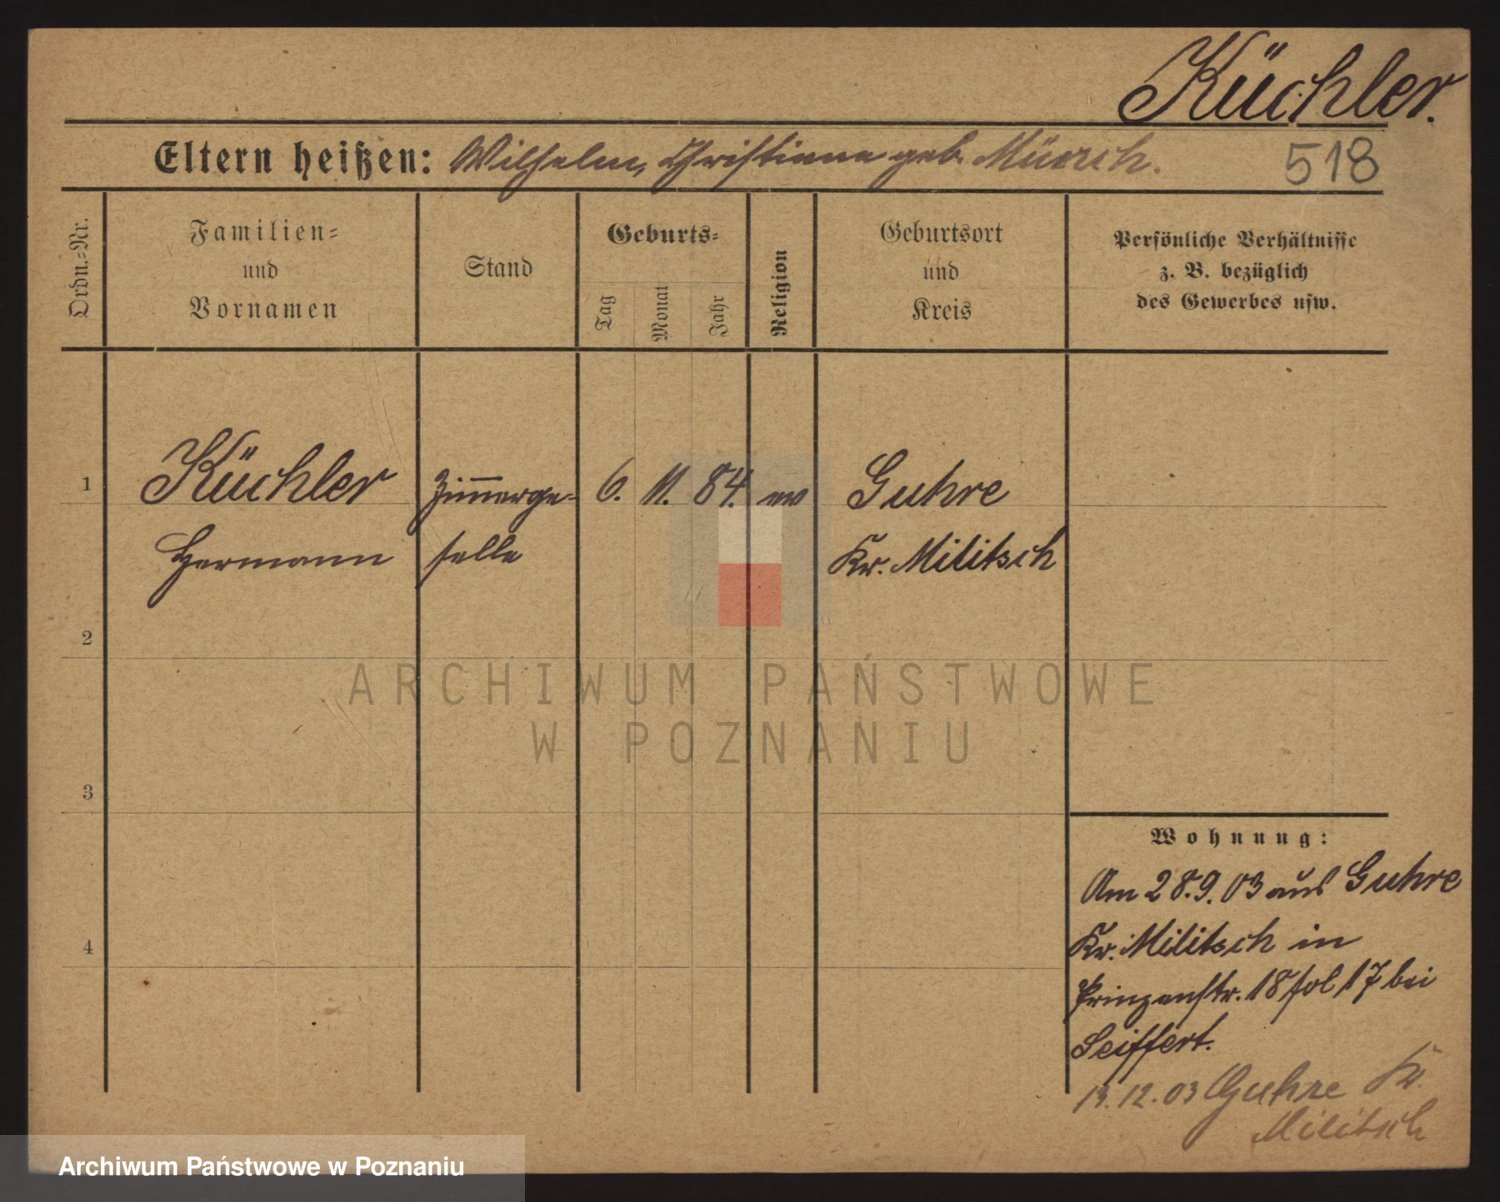 Küchler.
Eltern heißen: Wilhelm, Christiane geb. Münch.
518
Ordn.-Nr.
Familien-
und
Vornamen
Stand
Geburts-
Tag
Monat
Jahr
Religion
Geburtsort
und
Kreis
Persönliche Verhältnisse
z. B. bezüglich
des Gewerbes usw.
1
Küchler Zimmerge- 6. 11. 84. ev Guhre
Hermann selle Kr. Militsch
2
ARCHIWUM PAŃSTWOWE
W POZNANIU
3
Wohnung:
Am 28.9.03 aus Guhre
Kr. Militsch in
Prinzenstr. 18 fol 17 bei
Seiffert.
13.12.03 Guhre Kr.
Militsch
4
Archiwum Państwowe w Poznaniu